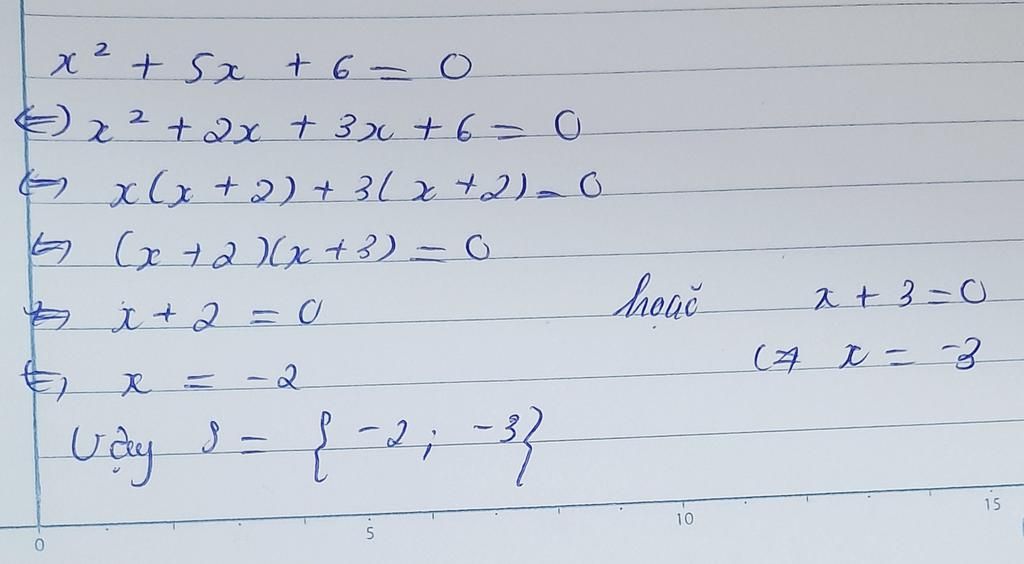 x² + 5x + 6 = 0
⇔ x² + 2x + 3x + 6 = 0
⇔ x(x + 2) + 3(x + 2) = 0
⇔ (x + 2)(x + 3) = 0
⇔ x + 2 = 0 hoặc x + 3 = 0
⇔ x = -2 ⇔ x = -3
Vậy S = { -2 ; -3}
0 5 10 15